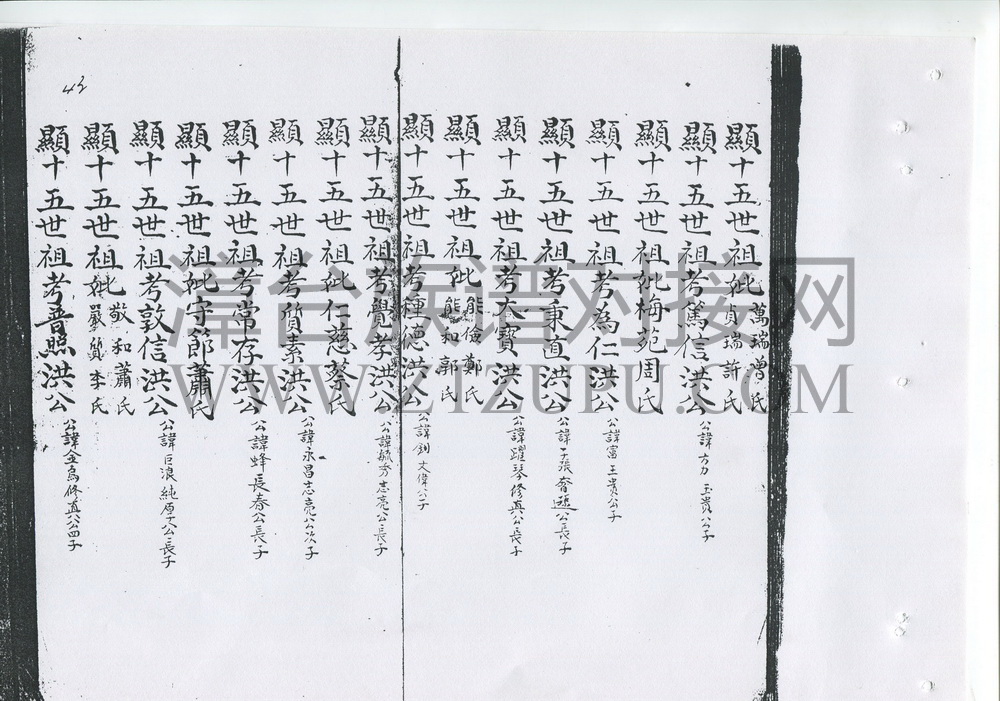 顯十五世祖妣萬瑞曾氏
貞瑞許氏
顯十五世祖考篤信洪公
公諱力玉貴公子
顯十五世祖妣梅苑周氏
顯十五世祖考為仁洪公
公諱富玉貴公子
顯十五世祖考秉直洪公
公諱公長子
顯十五世祖考太寶洪公
公諱躍琴修真公長子
顯十五世祖妣能儉鄭氏
能和郭氏
顯十五世祖考種德洪公
公諱釗文偉公子
顯十五世祖考覺孝洪公
公諱毓秀志亮公長子
顯十五世祖妣仁慈蔡氏
顯十五世祖考質素洪公
公諱永昌志亮公次子
顯十五世祖考常存洪公
公諱蜂長春公長子
顯十五世祖妣守節蕭氏
顯十五世祖考敦信洪公
公諱巨浪純厚公長子
顯十五世祖妣敬和蕭氏
嚴質李氏
顯十五世祖考普照洪公
公諱金烏修真公四子
漳台族谱对接网
WWW.ZTZUPU.COM